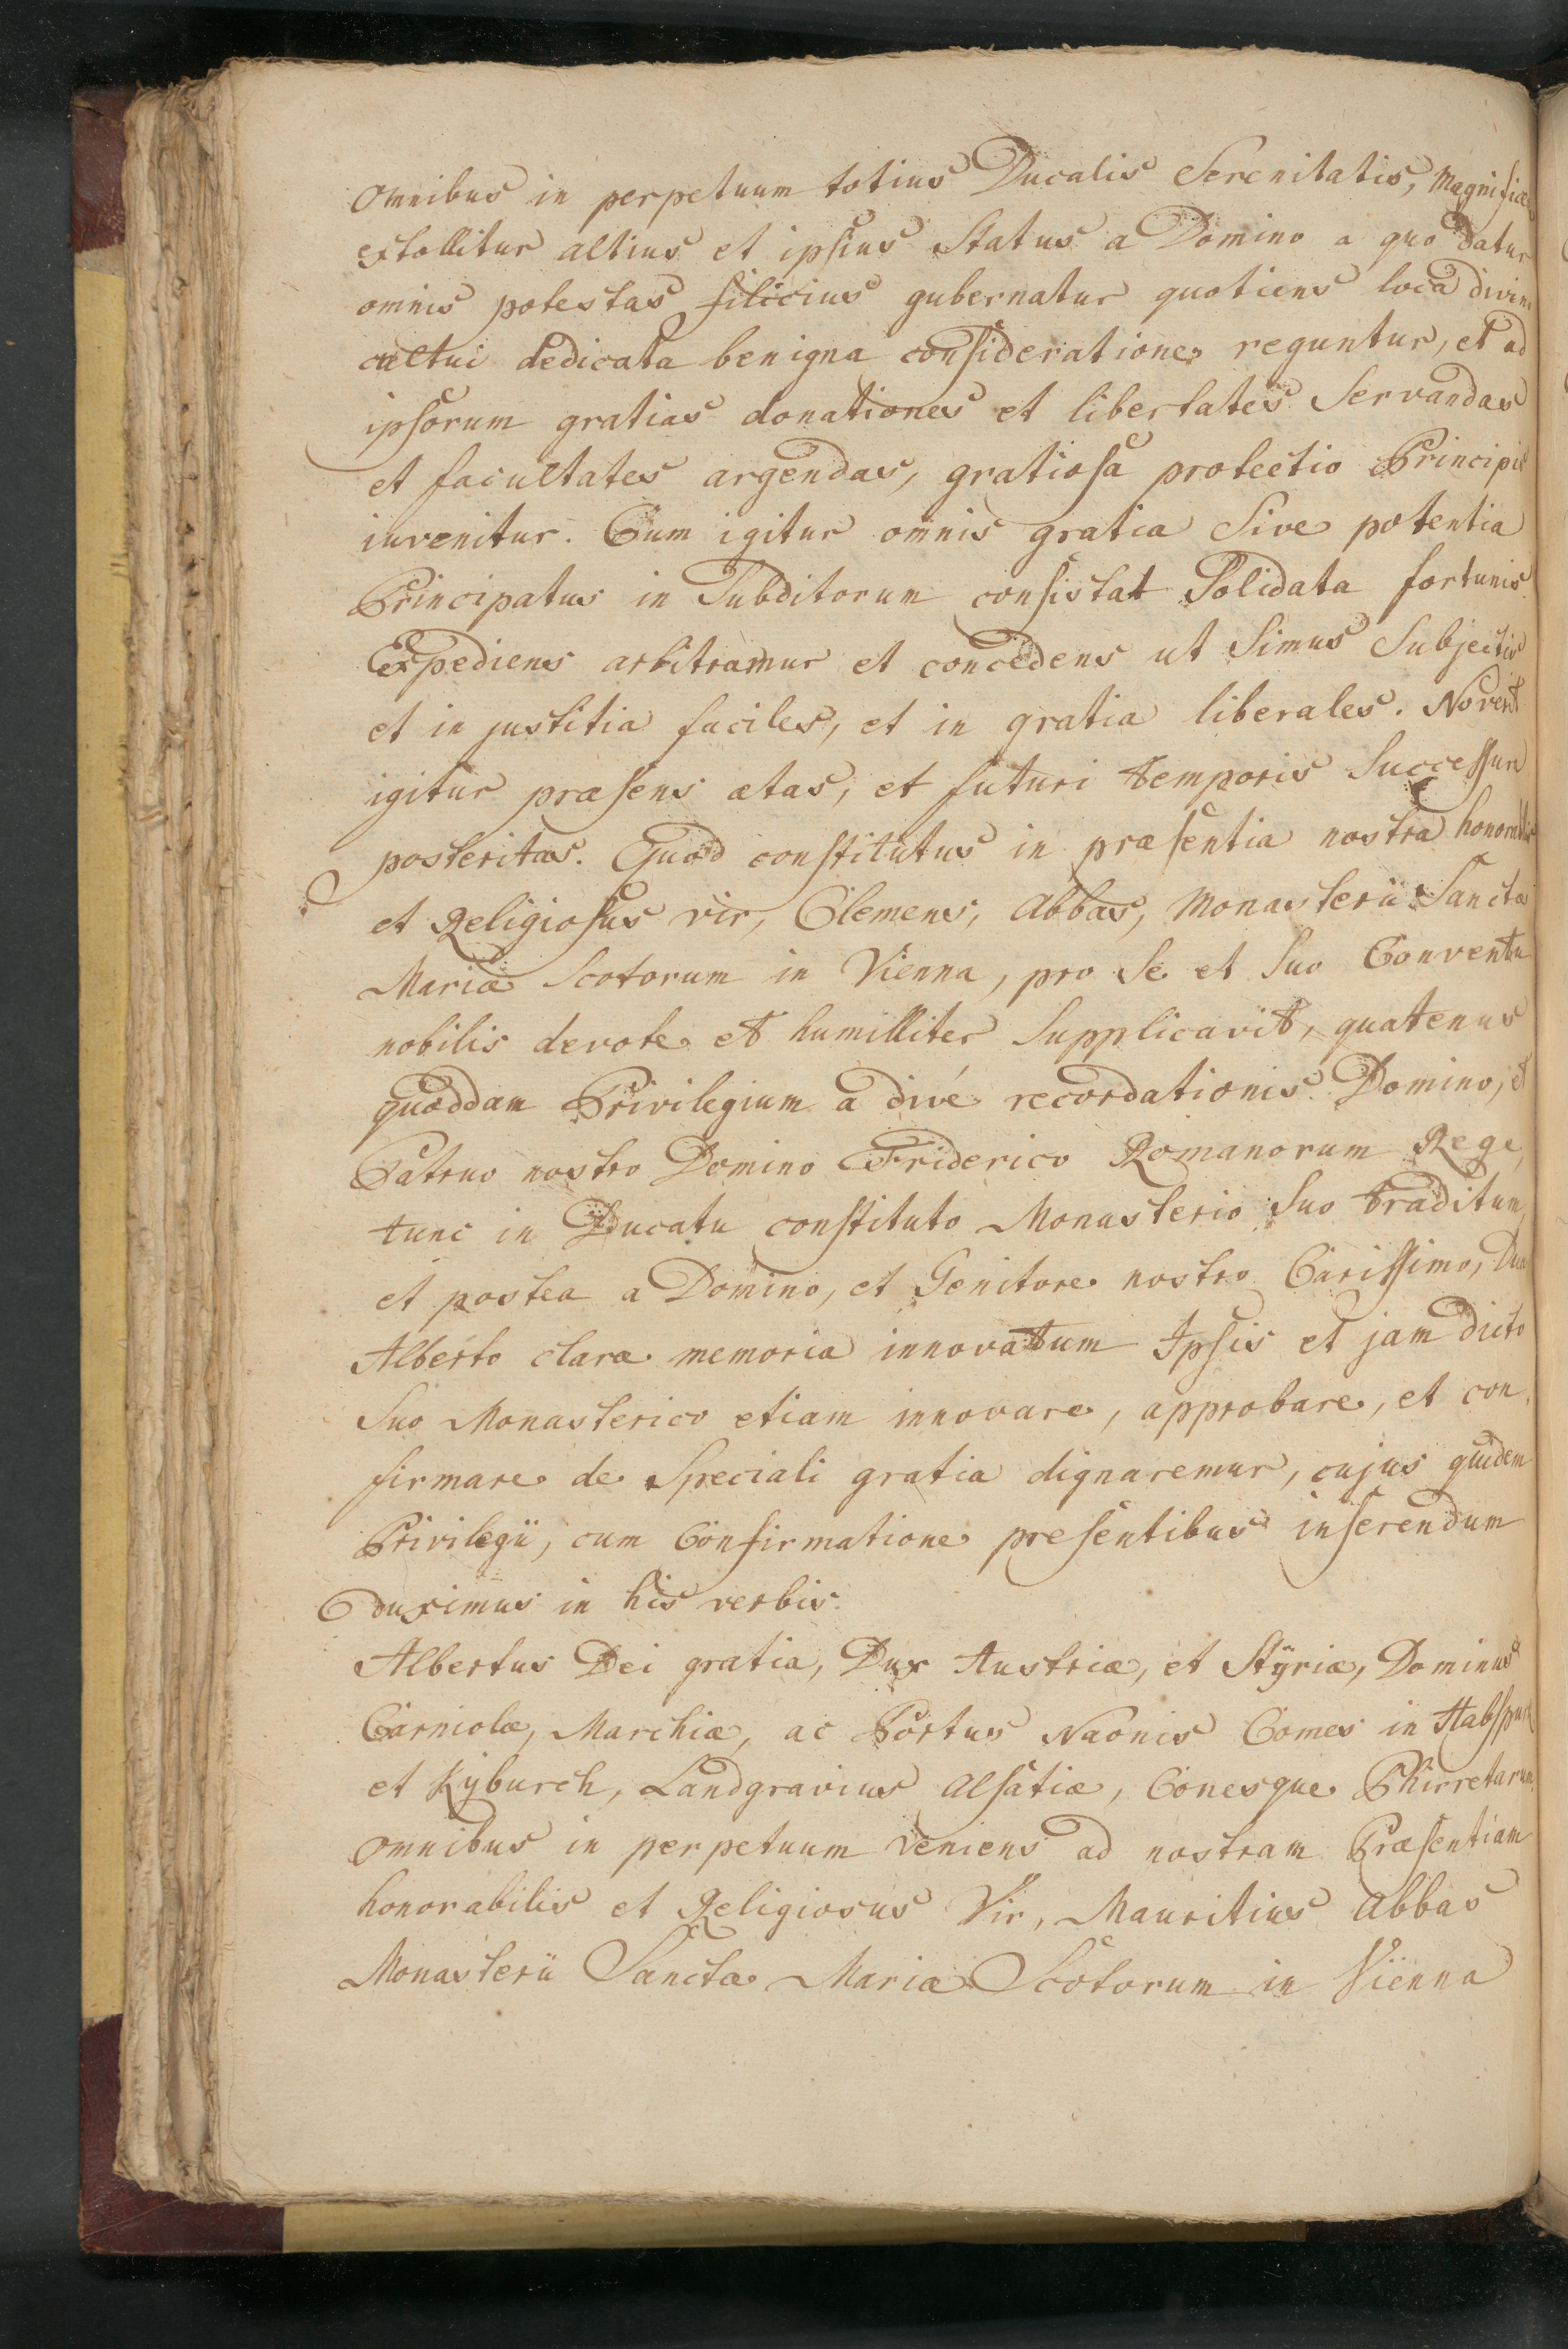 omnibus in perpetuum totius Ducalis Serenitatis, Magnifice
extollitur altius et ipsius Status a Domino a quo datur
omnis potestas filicius gubernatur quotiens loca divin
cultui dedicata benigna consideratione reguntur, et ad
ipsorum gratias donationes et libertates Servandas
et facultates argendas, gratiosa protectio Principis
invenitur. Cum igitur omnis gratia Sive potentia
Principatus in Subditorum consistat Solidata fortunis.
Expediens arbitramur et concedens ut Simus Subjectis
et in justitia faciles, et in gratia liberales. Noverit
igitur præsens ætas, et futuri temporis Successura
posteritas. Quod constitutus in præsentia nostra honorabilis
et Religiosus vir, Clemens, Abbas, Monasterii Sanctæ
Mariæ Scotorum in Vienna, pro Se et Suo Conventu
nobilis devote et humilliter Supplicavit, quatenus
quoddam Privilegium a divé recordationis Domino, et
Patruo nostro Domino Friderico Romanorum Rege,
tunc in Ducatu constituto Monasterio Suo traditum,
et postea a Domino, et Genitore nostro Carissimo, Duce
Alberto claræ memoriæ innovatum Ipsis et jam dicto
Suo Monasterico etiam innovare, approbare, et con,
firmare de Speciali gratia dignaremur, cujus quidem
Privilegii, cum Confirmatione presentibus inserendum
duximus in his verbis.
Albertus Dei gratia, Dux Austriæ, et Stÿriæ, Dominus
Carniolæ, Marchiæ, ac Portus Naonis Comes in Habspurk
et Kÿburch, Landgravius Alsatiæ, Conesque Phirretarum
omnibus in perpetuum veniens ad nostram Præsentiam
honorabilis et Religiosus Vir, Mauritius Abbas
Monasterii Sanctæ Mariæ Scotorum in Vienna